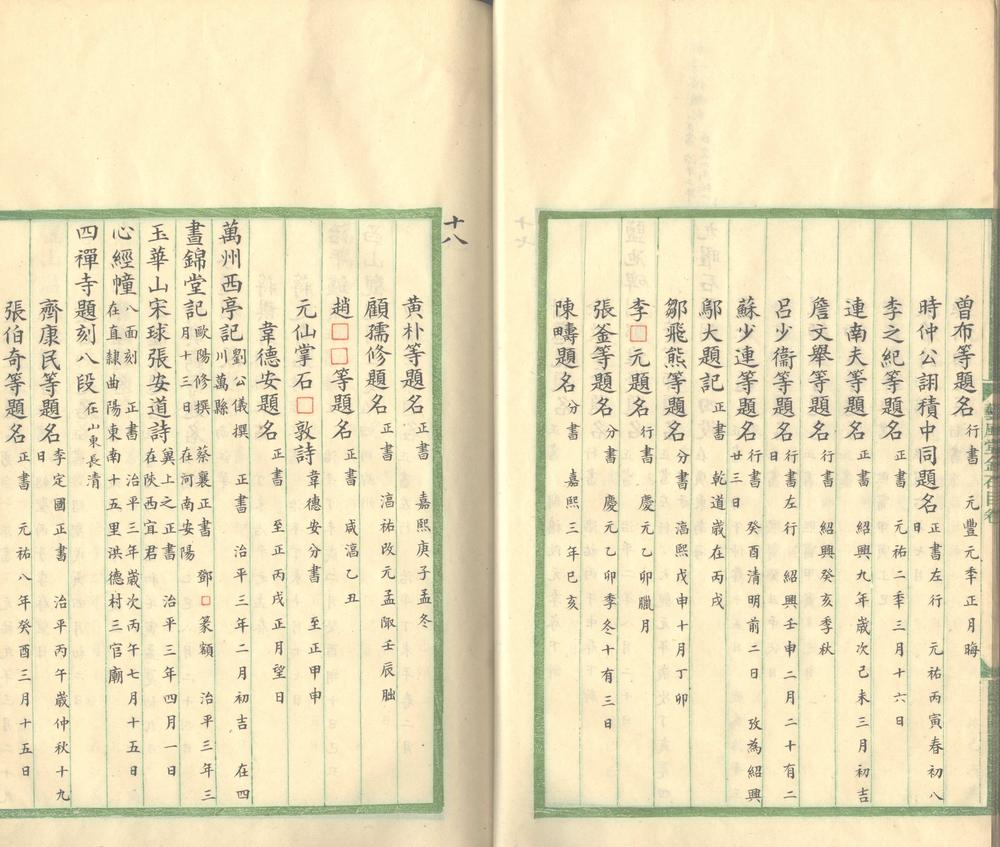 曾布等題名行書　元豐元秊正月晦
時仲公詡積中同題名正書左行　元祐丙寅春初八日
李之紀等題名正書　元祐二秊三月十六日
連南夫等題名正書　紹興九年歲次己未三月初吉
詹文舉等題名行書　紹興癸亥季秋
呂少衞等題名行書左行　紹興壬申二月二十有二日
蘇少連等題名行書　癸酉清明前二日　攷為紹興廿三日
鄔大題記正書　乾道歲在丙戌
鄒飛熊等題名分書　湻熙戊申十月丁卯
李□元題名行書　慶元乙卯臘月
張釜等題名分書　慶元乙卯季冬十有三日
陳疇題名分書　嘉熙三年己亥
十八
黃朴等題名正書　嘉熙庚子孟冬
顧孺修題名正書　湻祐改元孟陬壬辰朏
趙□□等題名正書　咸湻乙丑
元仙掌石□敦詩韋德安分書　至正甲申
韋德安題名正書　至正丙戌正月望日
萬州西亭記劉公儀撰　正書　治平三年二月初吉　在四川萬縣
晝錦堂記歐陽修撰　蔡襄正書　鄧□篆額　治平三年三月十三日在河南安陽
玉華山宋球張安道詩巽上之正書　治平三年四月一日在陝西宜君
心經幢八面刻　正書　治平三年歲次丙午七月十五日在直隸曲陽東南十五里洪德村三官廟
四禪寺題刻八段在山東長清
齊康民等題名李定國正書　治平丙午歲仲秋十九日
張伯奇等題名正書　元祐八年癸酉三月十五日